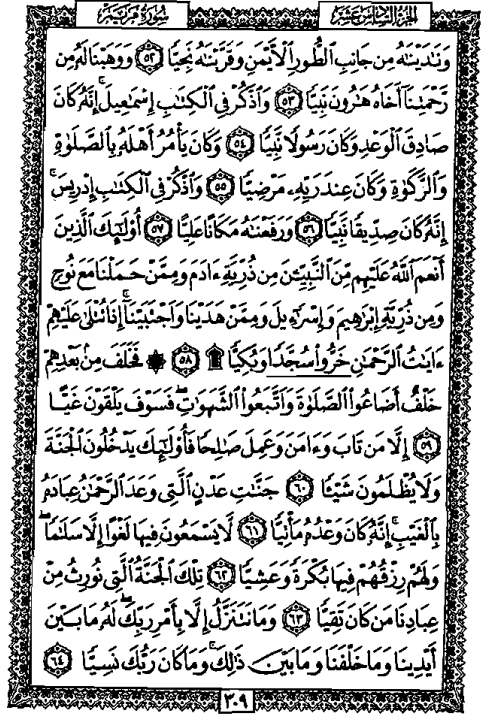 الجزء السادس عشر
سورة مريم
وَنَـٰدَيْنَـٰهُ مِن جَانِبِ ٱلطُّورِ ٱلْأَيْمَنِ وَقَرَّبْنَـٰهُ نَجِيًّا ٥٢ وَوَهَبْنَا لَهُۥ مِن
رَّحْمَتِنَآ أَخَاهُ هَـٰرُونَ نَبِيًّا ٥٣ وَٱذْكُرْ فِى ٱلْكِتَـٰبِ إِسْمَـٰعِيلَ ۚ إِنَّهُۥ كَانَ
صَادِقَ ٱلْوَعْدِ وَكَانَ رَسُولًا نَّبِيًّا ٥٤ وَكَانَ يَأْمُرُ أَهْلَهُۥ بِٱلصَّلَوٰةِ
وَٱلزَّكَوٰةِ وَكَانَ عِندَ رَبِّهِۦ مَرْضِيًّا ٥٥ وَٱذْكُرْ فِى ٱلْكِتَـٰبِ إِدْرِيسَ ۚ
إِنَّهُۥ كَانَ صِدِّيقًا نَّبِيًّا ٥٦ وَرَفَعْنَـٰهُ مَكَانًا عَلِيًّا ٥٧ أُو۟لَـٰٓئِكَ ٱلَّذِينَ
أَنْعَمَ ٱللَّهُ عَلَيْهِم مِّنَ ٱلنَّبِيِّـۧنَ مِن ذُرِّيَّةِ ءَادَمَ وَمِمَّنْ حَمَلْنَا مَعَ نُوحٍ
وَمِن ذُرِّيَّةِ إِبْرَٰهِيمَ وَإِسْرَٰٓءِيلَ وَمِمَّنْ هَدَيْنَا وَٱجْتَبَيْنَآ ۚ إِذَا تُتْلَىٰ عَلَيْهِمْ
ءَايَـٰتُ ٱلرَّحْمَـٰنِ خَرُّوا۟ سُجَّدًا وَبُكِيًّا ۩ ٥٨ ۞ فَخَلَفَ مِنۢ بَعْدِهِمْ
خَلْفٌ أَضَاعُوا۟ ٱلصَّلَوٰةَ وَٱتَّبَعُوا۟ ٱلشَّهَوَٰتِ ۖ فَسَوْفَ يَلْقَوْنَ غَيًّا
٥٩ إِلَّا مَن تَابَ وَءَامَنَ وَعَمِلَ صَـٰلِحًا فَأُو۟لَـٰٓئِكَ يَدْخُلُونَ ٱلْجَنَّةَ
وَلَا يُظْلَمُونَ شَيْـًٔا ٦٠ جَنَّـٰتِ عَدْنٍ ٱلَّتِى وَعَدَ ٱلرَّحْمَـٰنُ عِبَادَهُۥ
بِٱلْغَيْبِ ۚ إِنَّهُۥ كَانَ وَعْدُهُۥ مَأْتِيًّا ٦١ لَّا يَسْمَعُونَ فِيهَا لَغْوًا إِلَّا سَلَـٰمًا ۖ
وَلَهُمْ رِزْقُهُمْ فِيهَا بُكْرَةً وَعَشِيًّا ٦٢ تِلْكَ ٱلْجَنَّةُ ٱلَّتِى نُورِثُ مِنْ
عِبَادِنَا مَن كَانَ تَقِيًّا ٦٣ وَمَا نَتَنَزَّلُ إِلَّا بِأَمْرِ رَبِّكَ ۖ لَهُۥ مَا بَيْنَ
أَيْدِينَا وَمَا خَلْفَنَا وَمَا بَيْنَ ذَٰلِكَ ۚ وَمَا كَانَ رَبُّكَ نَسِيًّا ٦٤
٣٠٩